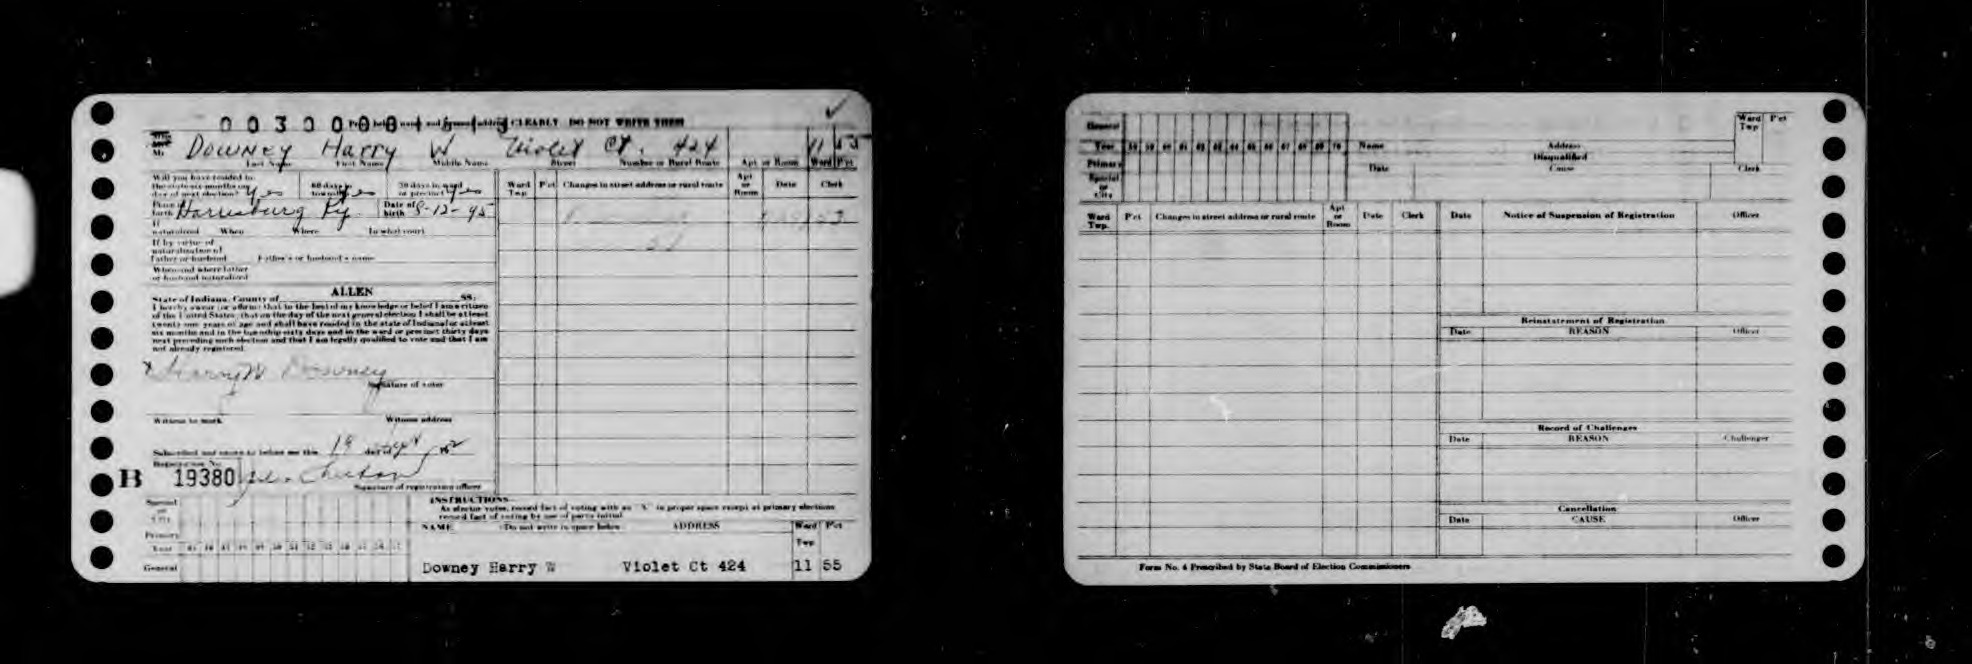 CLEARLY DO NOT WRITE THEM
Downey Harry W Violet Ct. 424 11 55
Last Name First Name Middle Name Street Number or Rural Route Apt or Room Ward P'ct
Will you have resided in
the state six months on 60 days in 30 days in ward
day of next election? yes township yes or precinct yes
Ward Twp. P'ct Changes in street address or rural route Apt or Room Date Clerk
Place of birth Harrisburg Ky. Date of birth 9-12-95
If
naturalized When Where In what court
If by virtue of
naturalization of
Father or husband Father's or husband's name
When and where father
or husband naturalized
State of Indiana, County of ALLEN SS:
I hereby swear or affirm that to the best of my knowledge or belief I am a citizen
of the United States; that on the day of the next general election I shall be at least
twenty-one years of age and shall have resided in the state of Indiana for at least
six months and in the township sixty days and in the ward or precinct thirty days
next preceding such election and that I am legally qualified to vote and that I am
not already registered.
x Harry W Downey
Signature of voter
Witness to mark Witness address
Subscribed and sworn to before me this 19 day of Sept
Registration No.
B 19380
Signature of registration officer
INSTRUCTIONS
As elector votes, record fact of voting with an "X" in proper space except at primary elections
record fact of voting by use of party initial.
Special or City
Primary
Year
General
NAME Do not write in space below ADDRESS Ward Twp P'ct
Downey Harry W Violet Ct 424 11 55
General
Year 58 59 60 61 62 63 64 65 66 67 68 69 70
Primary
Special or City
Name Address
Disqualified
Date Cause Clerk
Ward Twp P'ct
Ward Twp. P'ct Changes in street address or rural route Apt or Room Date Clerk
Date Notice of Suspension of Registration Officer
Reinstatement of Registration
Date REASON Officer
Record of Challenges
Date REASON Challenger
Cancellation
Date CAUSE Officer
Form No. 4 Prescribed by State Board of Election Commissioners